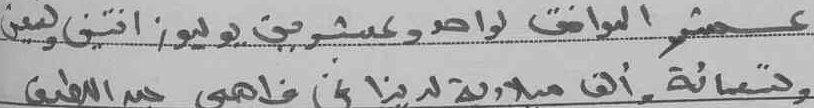 عشر الموافق لواحد وعشرين يوليوز اثنين وتسعين
وتسعمائة وألف ميلادية لدينا نحن فاهمي عبد اللطيف